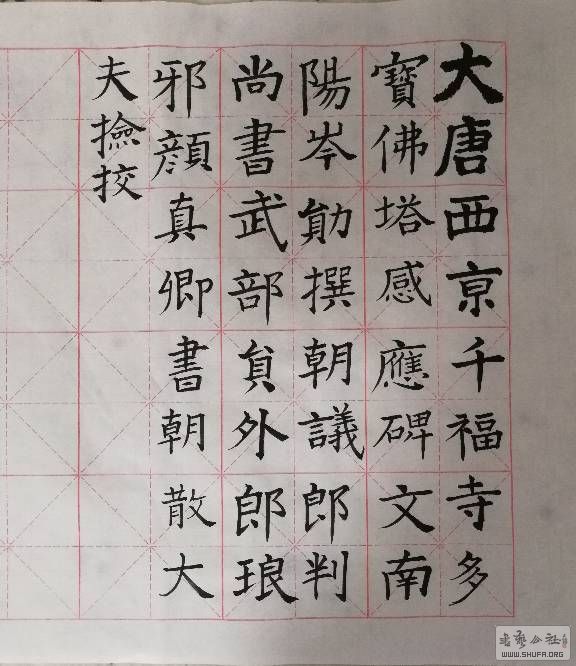 大唐西京千福寺多
寶佛塔感應碑文南
陽岑勛撰朝議郎判
尚書武部貟外郎琅
邪顔真卿書朝散大
夫撿挍
书艺公社
WWW.SHUFA.ORG